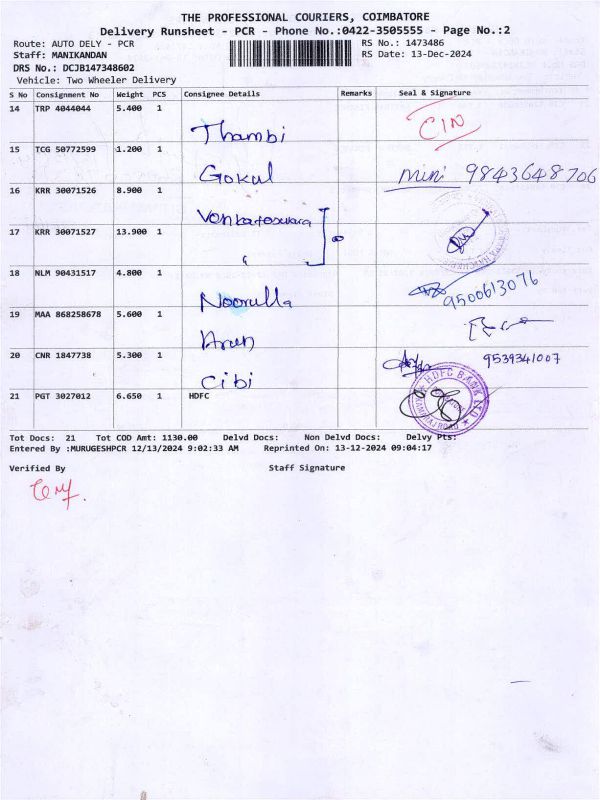 THE PROFESSIONAL COURIERS, COIMBATORE
Delivery Runsheet - PCR - Phone No.:0422-3505555 - Page No.:2
Route: AUTO DELY - PCR RS No.: 1473486
Staff: MANIKANDAN RS Date: 13-Dec-2024
DRS No.: DCJB147348602
Vehicle: Two Wheeler Delivery
S No Consignment No Weight PCS Consignee Details Remarks Seal & Signature
14 TRP 4044044 5.400 1
Thambi CIN
15 TCG 50772599 1.200 1
Gokul mini 9843648706
16 KRR 30071526 8.900 1
Venkateswara
17 KRR 30071527 13.900 1
18 NLM 90431517 4.800 1
Noorulla 9500613076
19 MAA 868258678 5.600 1
Arun
20 CNR 1847738 5.300 1 9539341007
Cibi
21 PGT 3027012 6.650 1 HDFC
HDFC BANK LTD
Tot Docs: 21 Tot COD Amt: 1130.00 Delvd Docs: Non Delvd Docs: Delvy Pts:
Entered By :MURUGESHPCR 12/13/2024 9:02:33 AM Reprinted On: 13-12-2024 09:04:17
Verified By Staff Signature